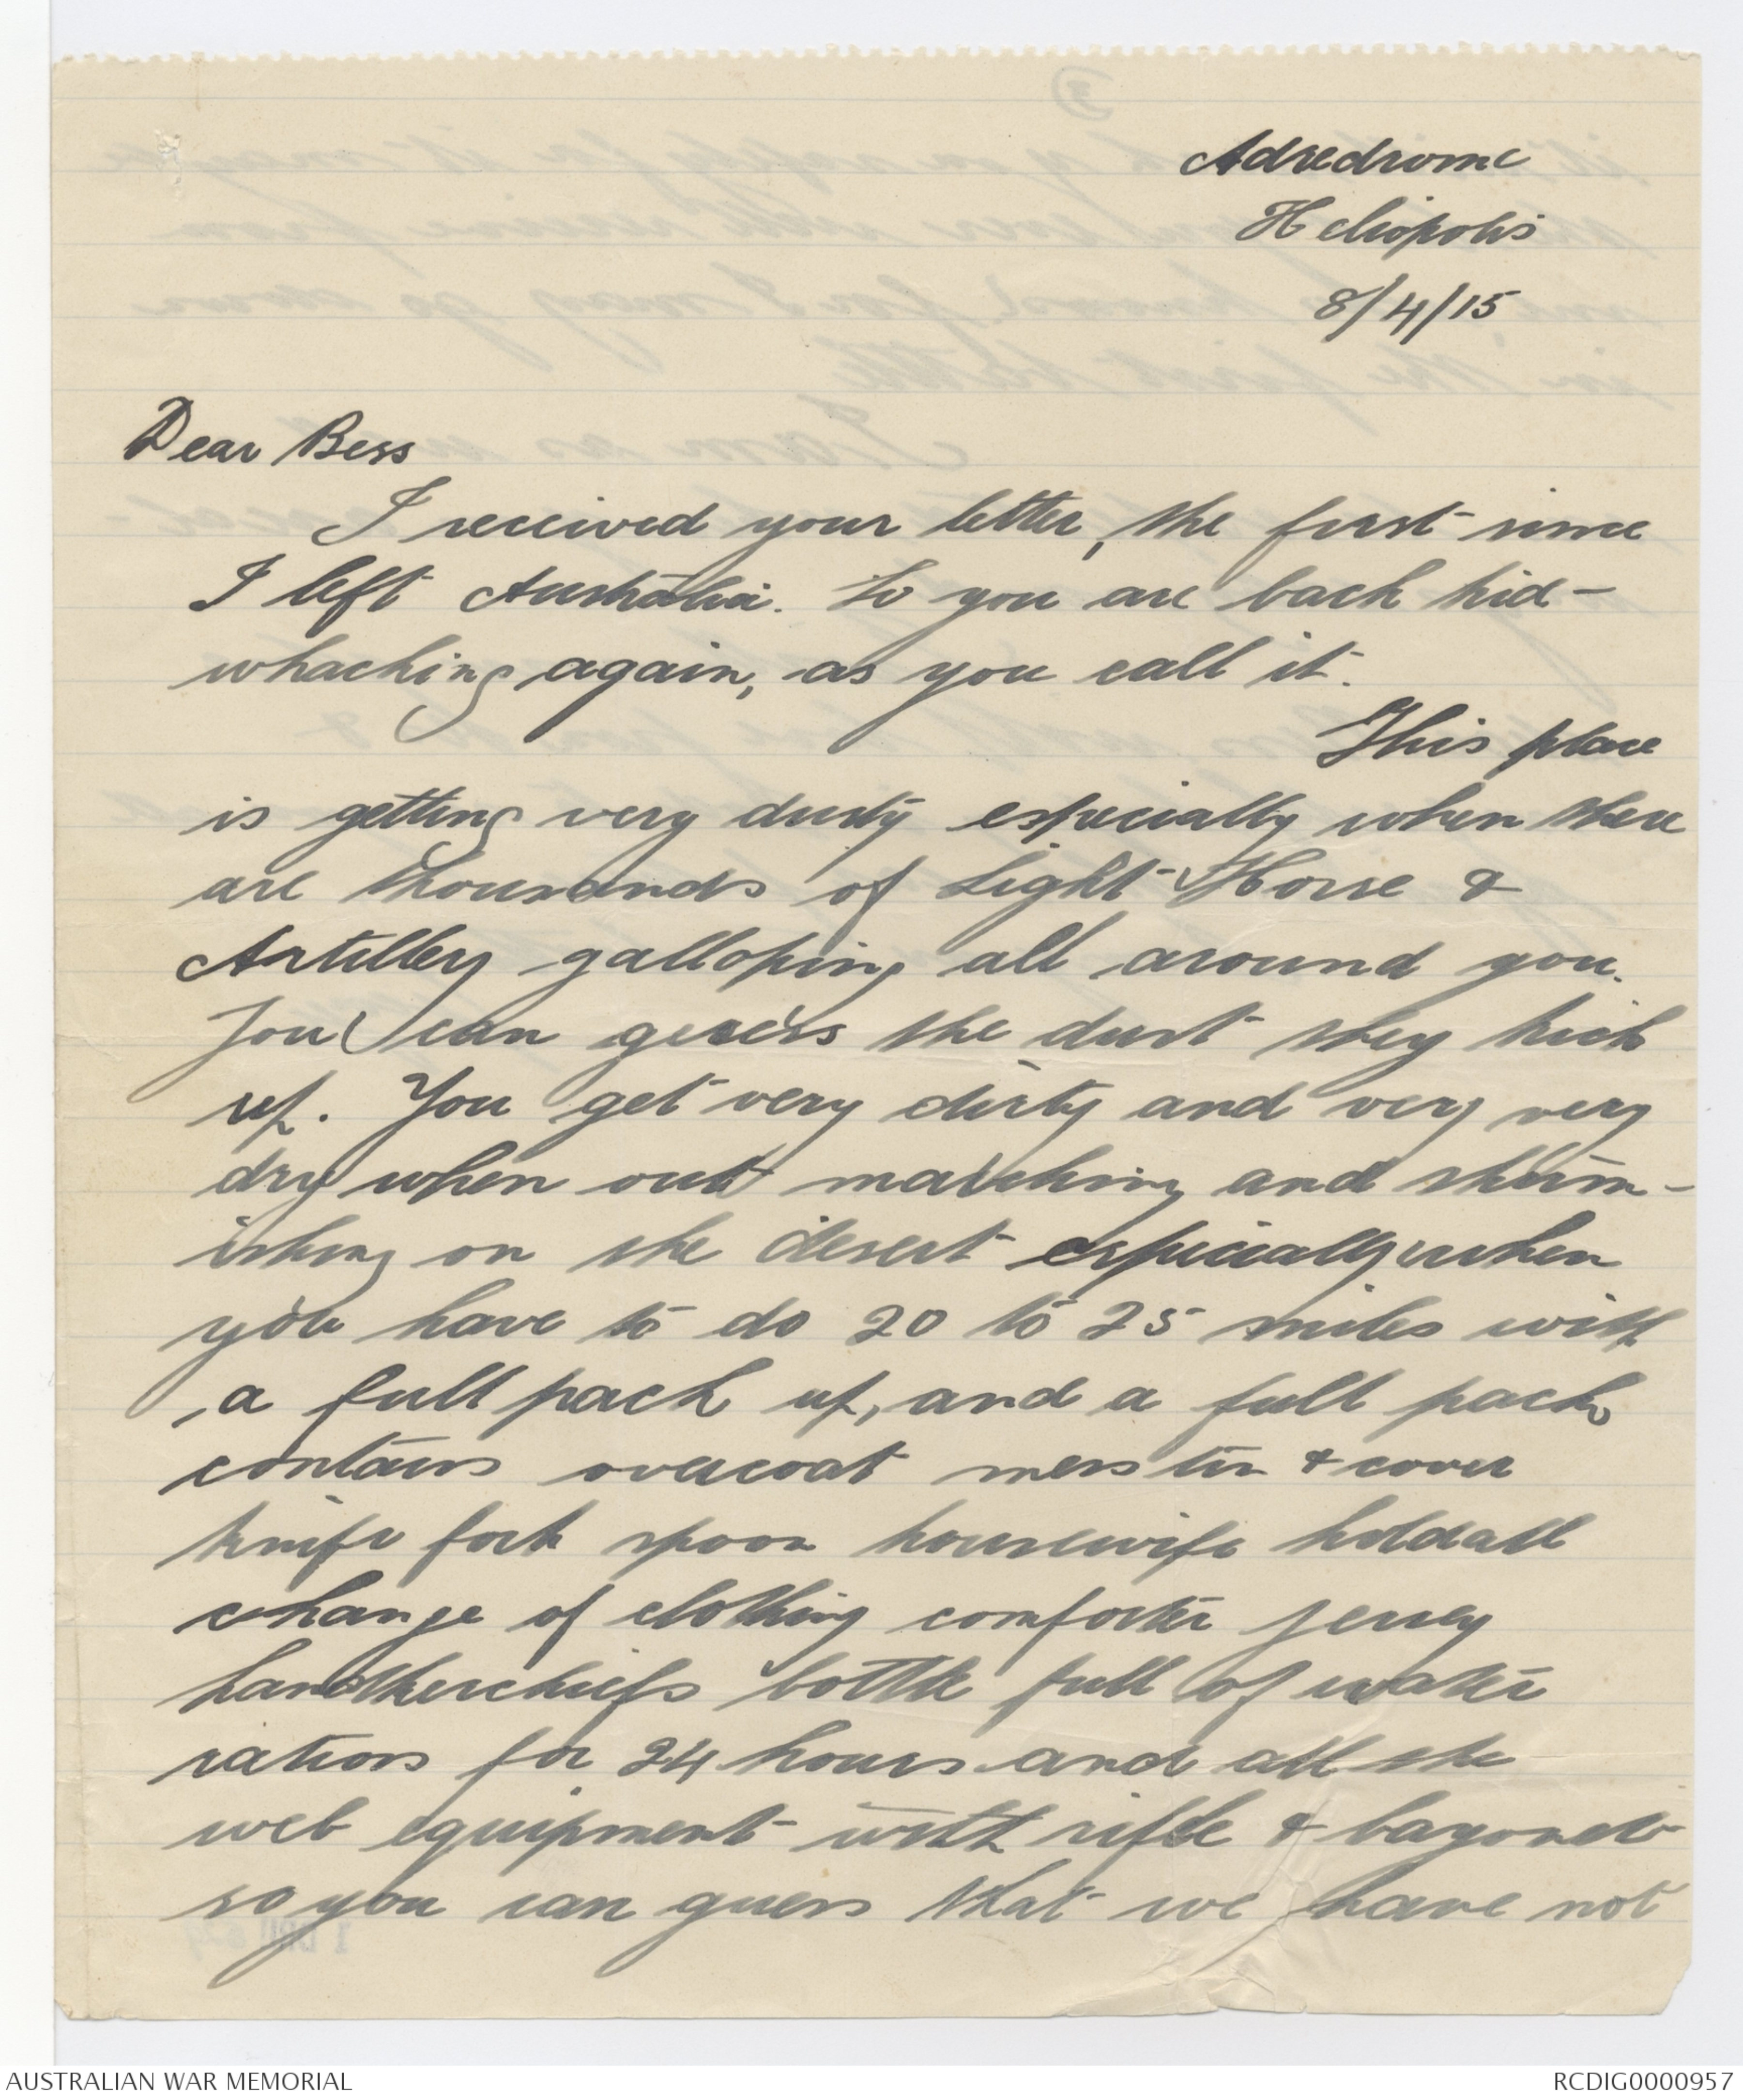 Adredrome
Heliopolis
8/4/15
Dear Bess
I received your letter, the first since
I left Australia. So you are back kid-
whacking again, as you call it.
This place
is getting very dusty especially when there
are thousands of Light Horse &
Artillery galloping all around you.
You can guess the dust they kick
up. You get very dirty and very very
dry when out marching and skirm-
ishing on the desert especially when
you have to do 20 to 25 miles with
a full pack up, and a full pack
contains overcoat mess tin & cover
knife fork spoon housewife holdall
change of clothing comforter jersey
handkerchiefs bottle full of water
rations for 24 hours and all the
web equipment with rifle & bayonet
so you can guess that we have not
AUSTRALIAN WAR MEMORIAL
RCDIG0000957